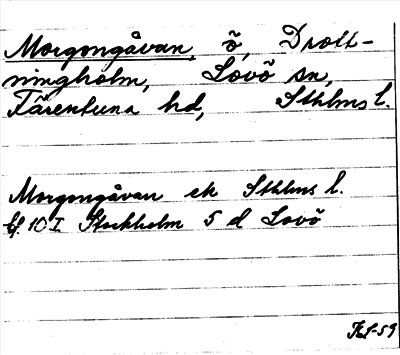 Morgongåvan, ö, Drott-
ningholm, Lovö sn,
Färentuna hd, Sthlms l.
Morgongåvan ek Sthlms l.
bl. 10 I Stockholm 5 d Lovö